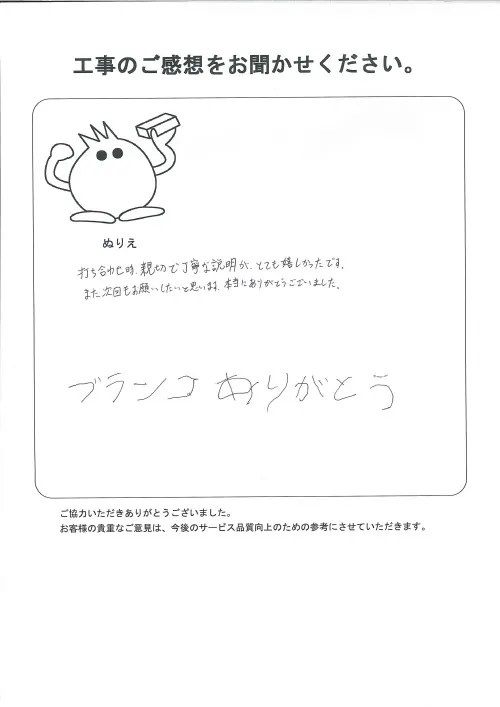 工事のご感想をお聞かせください。
ぬりえ
打ち合わせ時、親切で丁寧な説明が、とても嬉しかったです。
また次回もお願いしたいと思います。本当にありがとうございました。
ブランコ ありがとう
ご協力いただきありがとうございました。
お客様の貴重なご意見は、今後のサービス品質向上のための参考にさせていただきます。